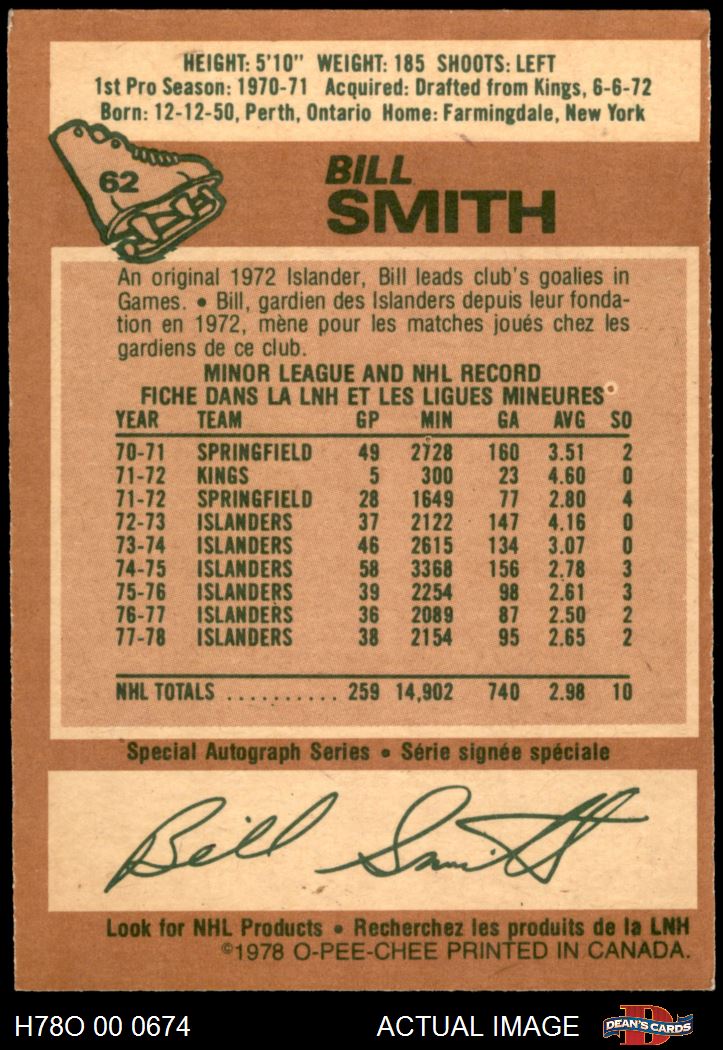 HEIGHT: 5'10" WEIGHT: 185 SHOOTS: LEFT
1st Pro Season: 1970-71 Acquired: Drafted from Kings, 6-6-72
Born: 12-12-50, Perth, Ontario Home: Farmingdale, New York
62
BILL
SMITH
An original 1972 Islander, Bill leads club's goalies in
Games. • Bill, gardien des Islanders depuis leur fonda-
tion en 1972, mène pour les matches joués chez les
gardiens de ce club.
MINOR LEAGUE AND NHL RECORD
FICHE DANS LA LNH ET LES LIGUES MINEURES
YEAR TEAM GP MIN GA AVG SO
70-71 SPRINGFIELD 49 2728 160 3.51 2
71-72 KINGS 5 300 23 4.60 0
71-72 SPRINGFIELD 28 1649 77 2.80 4
72-73 ISLANDERS 37 2122 147 4.16 0
73-74 ISLANDERS 46 2615 134 3.07 0
74-75 ISLANDERS 58 3368 156 2.78 3
75-76 ISLANDERS 39 2254 98 2.61 3
76-77 ISLANDERS 36 2089 87 2.50 2
77-78 ISLANDERS 38 2154 95 2.65 2
NHL TOTALS .......... 259 14,902 740 2.98 10
Special Autograph Series • Série signée spéciale
Bill Smith
Look for NHL Products • Recherchez les produits de la LNH
©1978 O-PEE-CHEE PRINTED IN CANADA.
H78O 00 0674 ACTUAL IMAGE D DEAN'S CARDS